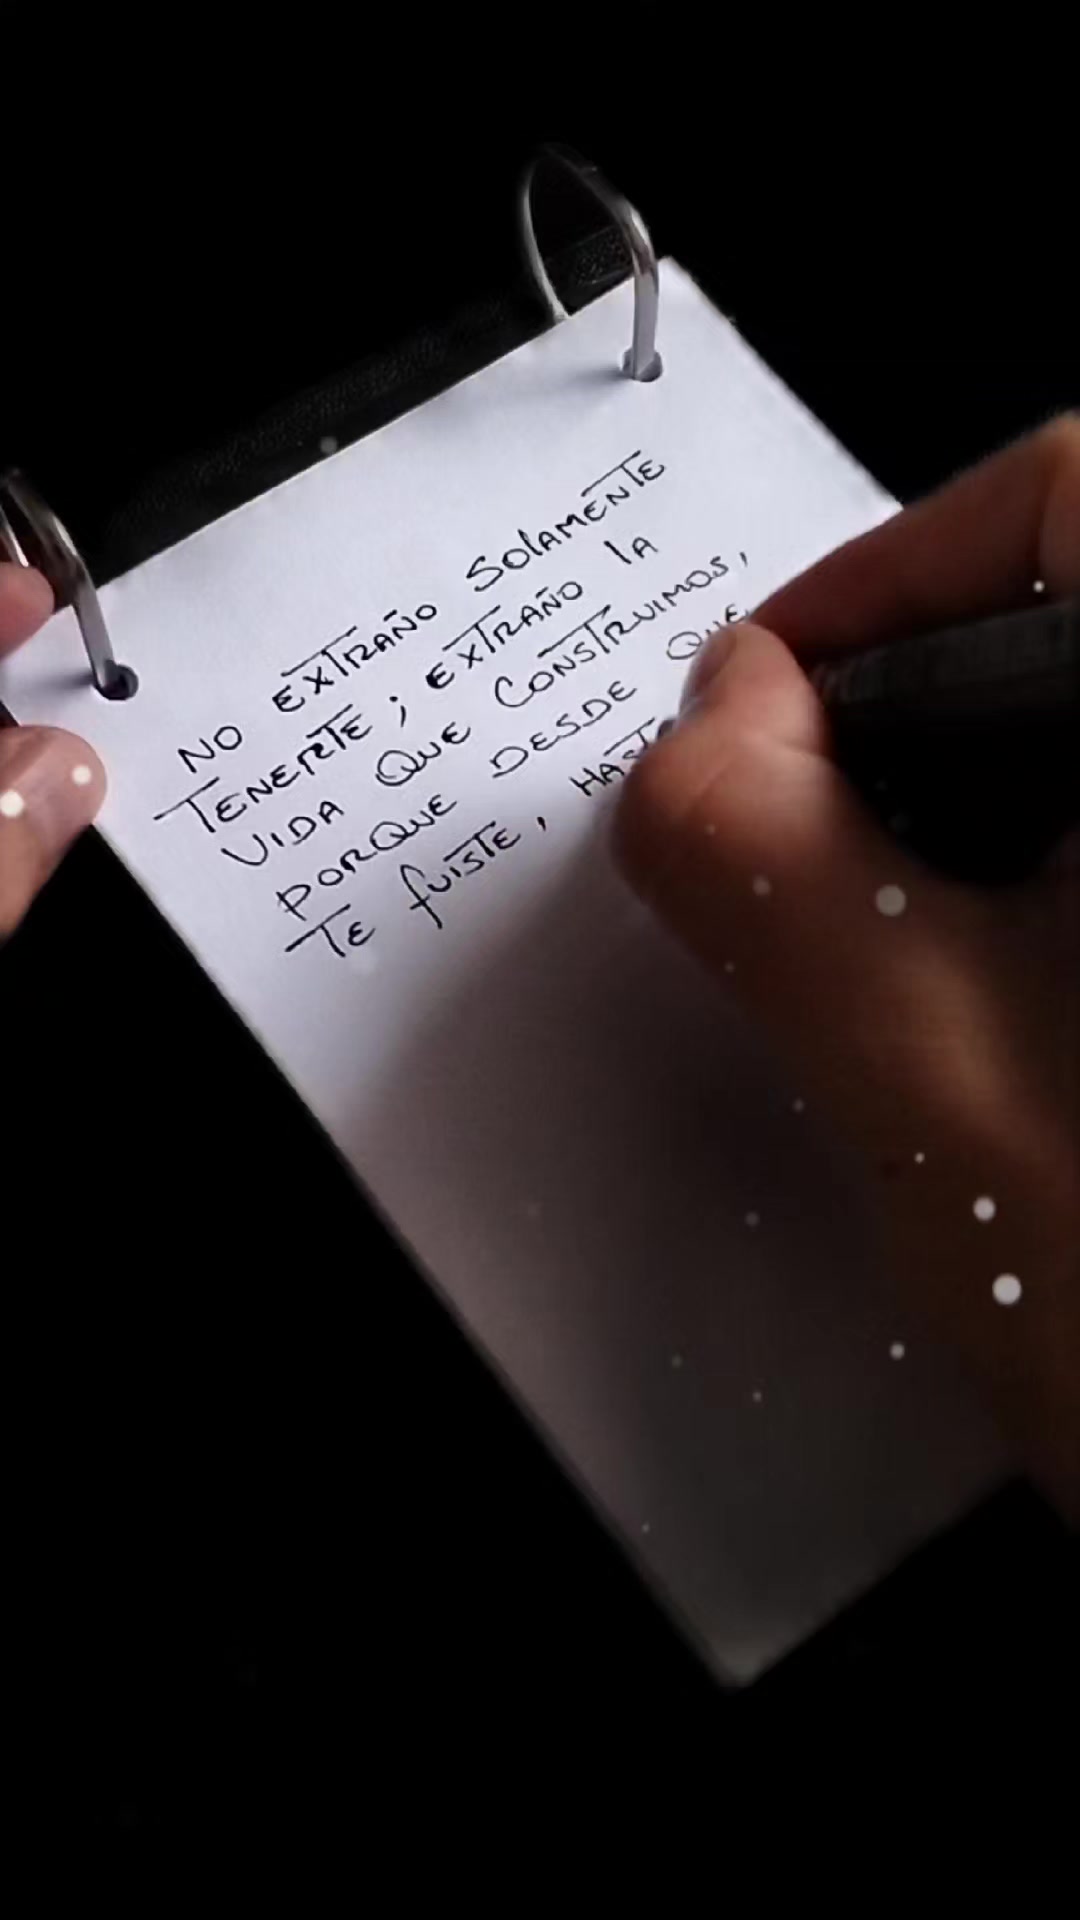 NO EXTRAÑO SOLAMENTE
TENERTE; EXTRAÑO LA
VIDA QUE CONSTRUIMOS,
PORQUE DESDE QUE
TE FUISTE,